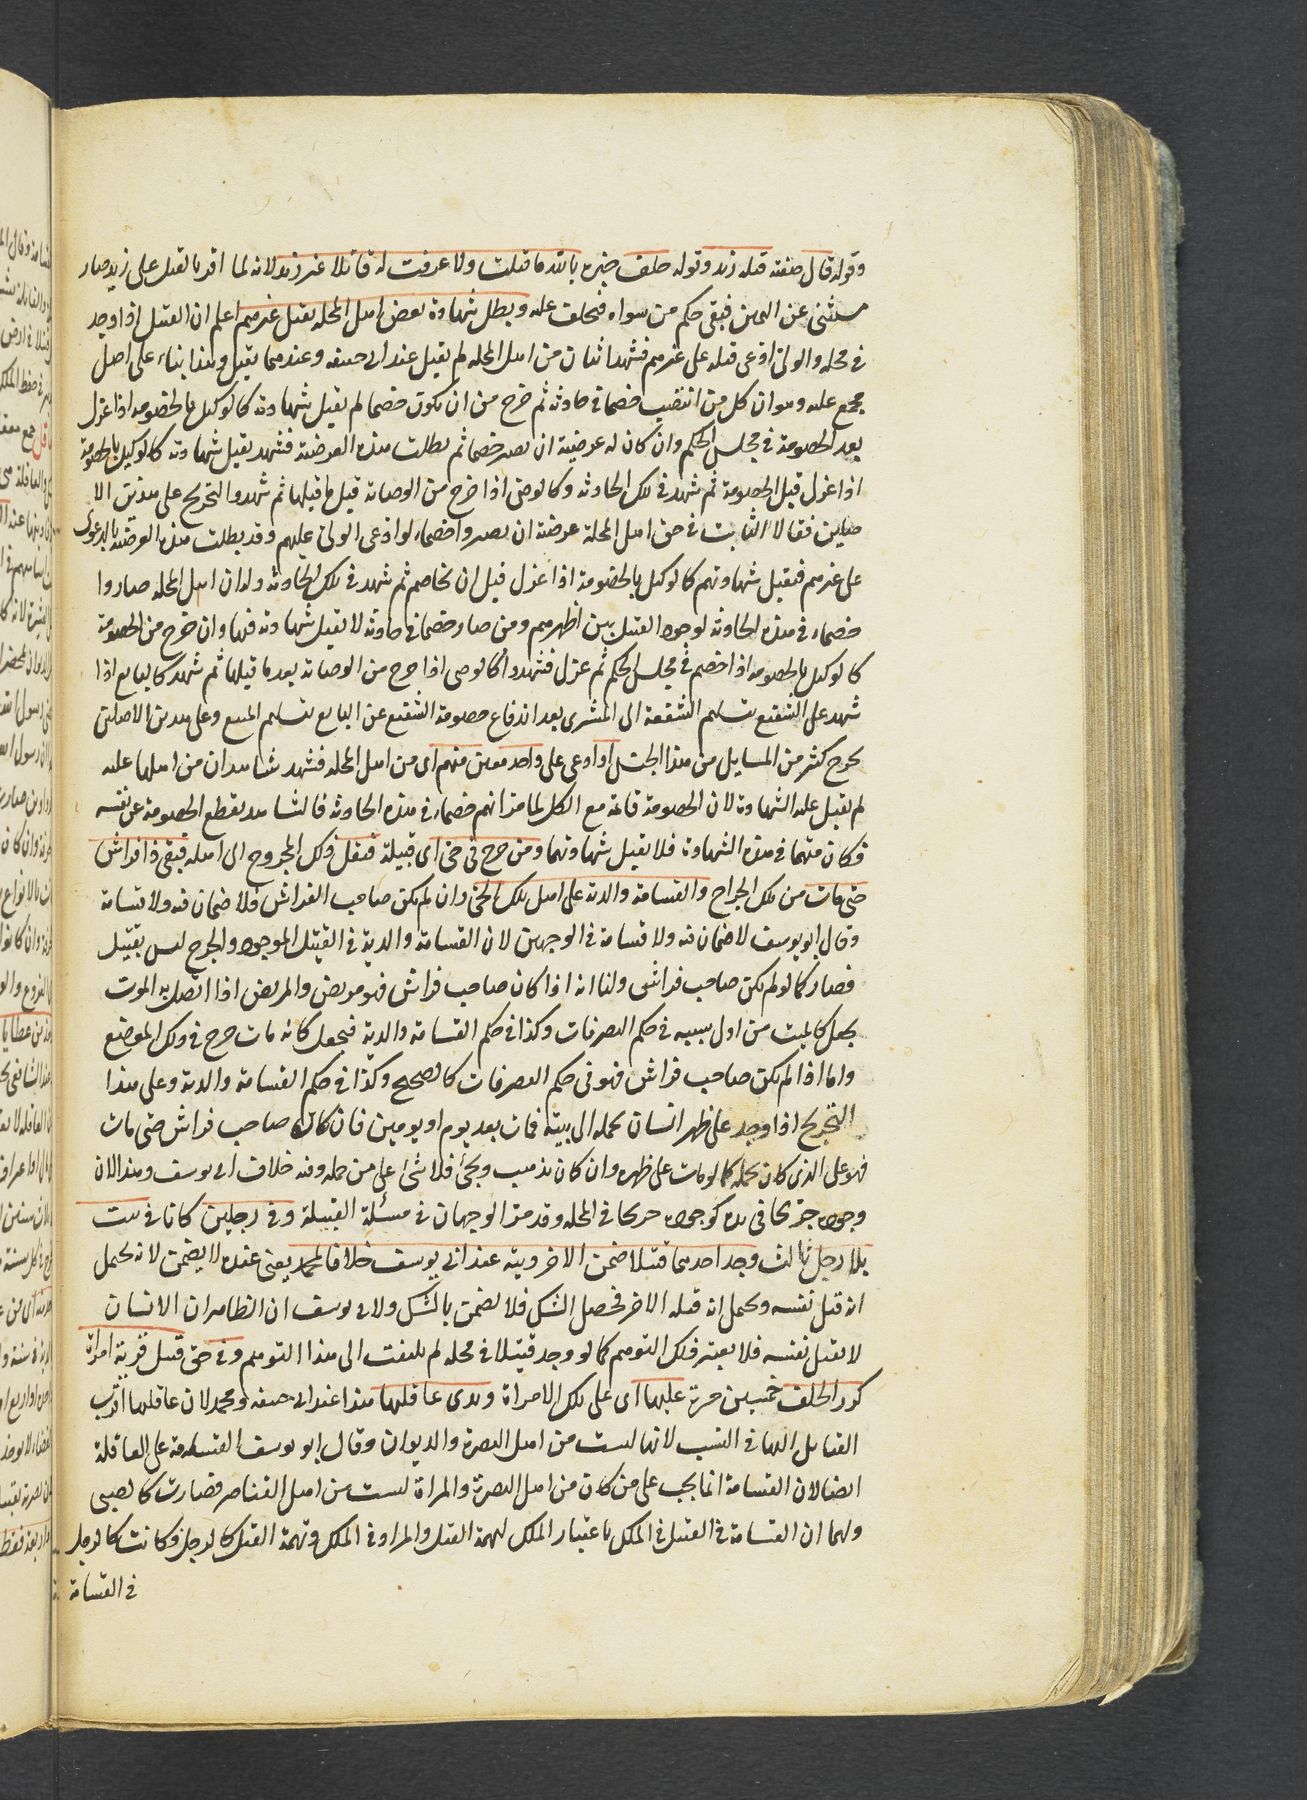 وقوله قال صفته قتله زيد وقوله حلف خبره بالله ما قتلت ولا عرفت له قاتلا غير زيد لانه لما اقر بالقتل على زيد صار
مستثنى عن اليمين فبقى حكم من سواه فيحلف عليه وبطل شهادة بعض اهل المحلة بقتل غيرهم اعلم ان القتيل اذا وجد
في محلة والولى ادعى قتله على غيرهم فشهد اثنان من اهل المحلة لم يقبل عند ابى حنيفة وعندهما يقبل وهذا بناء على اصل
مجمع عليه وهو ان كل من انتصب خصما في حادثة ثم خرج من ان يكون خصما لم يقبل شهادته كالوكيل بالخصومة اذا عزل
بعد الخصومة في مجلس الحكم وان كان له عرضية ان يصير خصما ثم بطلت هذه العرضية فشهد يقبل شهادته كالوكيل بالخصومة
اذا عزل قبل الخصومة ثم شهد في تلك الحادثة وكالوصى اذا خرج من الوصاية قبل ما قبلها ثم شهد والتخريج على هذين الا
صلين فقالا الثابت في حق اهل المحلة عرضية ان يصيروا خصماء لو ادعى الولى عليهم وقد بطلت هذه العرضية بالدعوى
على غيرهم فيقبل شهادتهم كالوكيل بالخصومة اذا عزل قبل ان يخاصم ثم شهد في تلك الحادثة وله ان اهل المحلة صاروا
خصماء في هذه الحادثة لوجود القتيل بين اظهرهم ومن صار خصما في حادثة لا يقبل شهادته فيها وان خرج من الخصومة
كالوكيل بالخصومة اذا خصم في مجلس الحكم ثم عزل فشهد وكالوصى اذا خرج من الوصاية بعد ما قبلها ثم شهد كالبايع اذا
شهد على الشفيع بتسليم الشفعة الى المشترى بعد اندفاع خصومة الشفيع عن البايع بتسليم المبيع وعلى هذين الاصلين
يخرج كثير من المسايل من هذا الجنس او ادعى على واحد معين منهم اى من اهل المحلة فشهد شاهدان من اهلها عليه
لم يقبل عليه الشهادة لان الخصومة قائمة مع الكل لما مر انهم خصماء في هذه الحادثة فالشاهد يقطع الخصومة عن نفسه
فكان متهما في هذه الشهادة فلا يقبل شهادتهما ومن جرح في حى اى قبيلة فنقل ذلك المجروح الى اهله فبقى ذا فراش
حتى مات من تلك الجراح والقسامة والدية على اهل تلك الحى وان لم يكن صاحب الفراش فلا ضمان فيه ولا قسامة
وقال ابو يوسف لا ضمان فيه ولا قسامة في الوجهين لان القسامة والدية في القتيل الموجود والجرح ليس بقتيل
فصار كما لو لم يكن صاحب فراش ولنا انه اذا كان صاحب فراش فهو مريض والمريض اذا اتصل به الموت
يجعل كالميت من اول سببه في حكم التصرفات وكذا في حكم القسامة والدية فيجعل كانه مات جرح في ذلك الموضع
واما اذا لم يكن صاحب فراش فهو في حكم التصرفات كالصحيح وكذا في حكم القسامة والدية وعلى هذا
التخريج اذا وجد على ظهر انسان يحمله الى بيته فمات بعد يوم او يومين فان كان صاحب فراش حتى مات
فهو على الذى كان يحمله كما لو مات على ظهره وان كان يذهب ويجئ فلا شئ على من حمله وفيه خلاف ابى يوسف وهذا لان
وجوده جريحا في يده كوجوده جريحا في المحلة وقد مر الوجهان في مسئلة القبيلة وفى رجلين كانا في بيت
بلا رجل ثالث وجد احدهما قتيلا ضمن الاخر ديته عند ابى يوسف خلافا لمحمد يعنى عنده لا يضمن لانه يحمل
انه قتل نفسه ويحمل انه قتله الاخر فحصل الشك فلا يضمن بالشك ولابى يوسف ان الظاهر ان الانسان
لا يقتل نفسه فلا يعتبر ذلك التوهم كما لو وجد قتيلا في محلة لم يلتفت الى هذا التوهم وفى حق قتيل قرية امراة
كرر الحلف خمسين مرة عليها اى على تلك الامراة ويدى عاقلتها هذا عند ابى حنيفة ومحمد لان عاقلتها اقرب
القبايل اليها في النسب لانها ليست من اهل النصرة والديوان وقال ابو يوسف القسامة على العاقلة
ايضا لان القسامة انما يجب على من كان من اهل النصرة والمراة ليست من اهل التناصر فصارت كالصبى
ولهما ان القسامة في القتيل في الملك باعتبار الملك لتهمة القتل والمراة في الملك وتهمة القتل كالرجل فكانت كالرجل
في القسامة